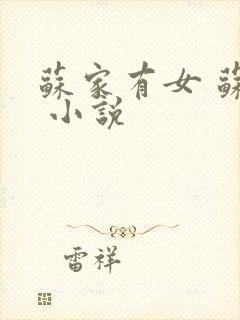 蘇家有女 蘇
小說
雷祥